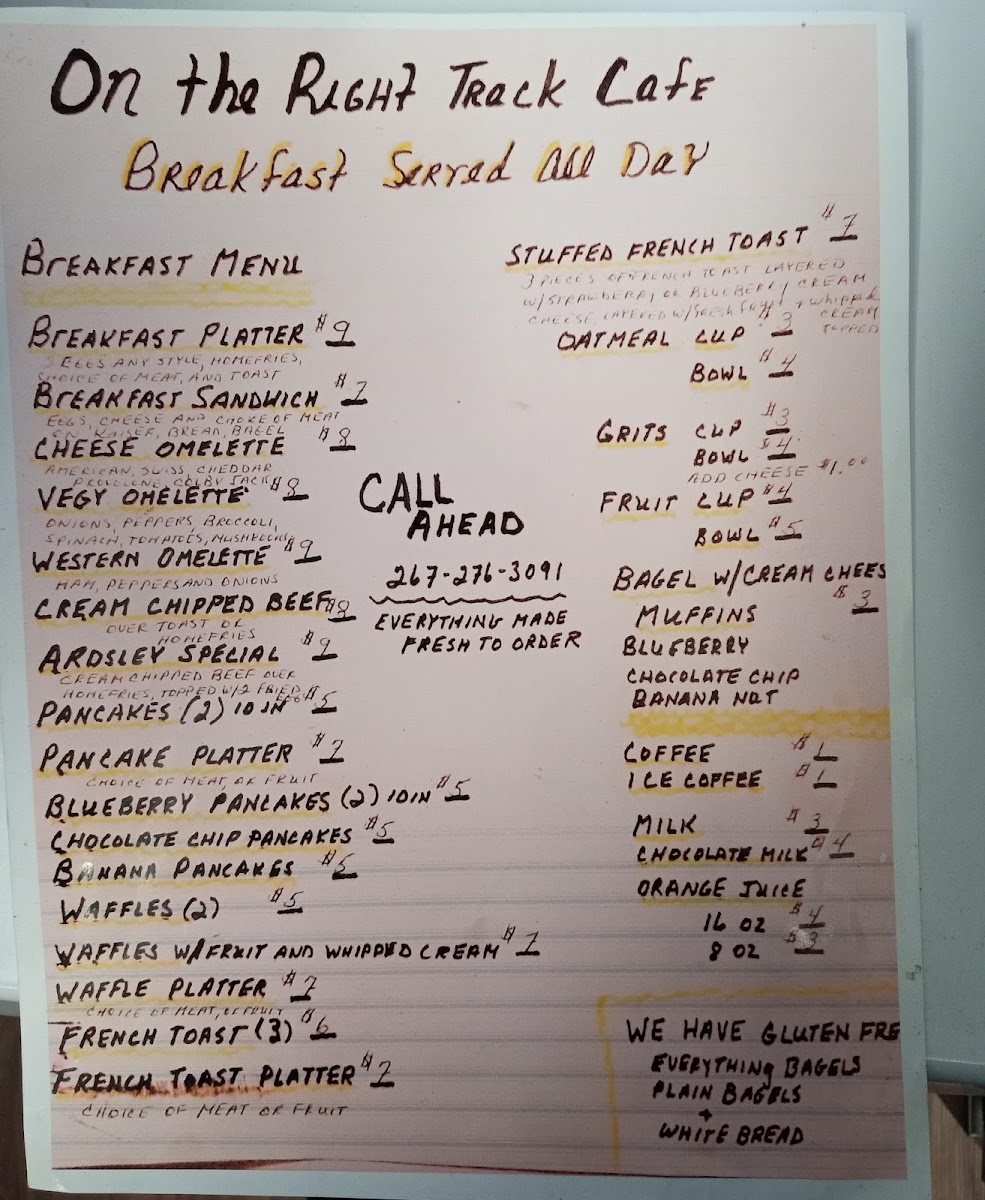 On the Right Track Cafe
Breakfast Served All Day
Breakfast Menu
Breakfast Platter $9
Eggs any style, homefries,
choice of meat, and toast
Breakfast Sandwich $7
Eggs, cheese and choice of meat
on Kaiser, bread, bagel
Cheese Omelette $8
American, Swiss, Cheddar
Provolone, Colby Jack
Vegy Omelette $8
Onions, peppers, broccoli,
spinach, tomatoes, mushrooms
Western Omelette $9
Ham, peppers and onions
Cream Chipped Beef $8
over toast or
homefries
Ardsley Special $9
Cream chipped beef over
homefries, topped w/2 fried
eggs
Pancakes (2) 10 in $5
Pancake Platter $7
choice of meat, or fruit
Blueberry Pancakes (2) 10in $5
Chocolate Chip Pancakes $5
Banana Pancakes $5
Waffles (2) $5
Waffles w/fruit and whipped cream $7
Waffle Platter $7
choice of meat, or fruit
French Toast (3) $6
French Toast Platter $7
choice of meat or fruit
Call
Ahead
267-276-3091
Everything made
fresh to order
Stuffed French Toast $7
3 pieces of French toast layered
w/strawberry or blueberry cream
cheese, layered w/fresh fruit + whipped
cream
topped
Oatmeal Cup $3
Bowl $4
Grits Cup $3
Bowl $4
Add cheese $1.00
Fruit Cup $4
Bowl $5
Bagel w/cream chees
$3
Muffins
Blueberry
Chocolate Chip
Banana Nut
Coffee $1
Ice Coffee $1
Milk $3
Chocolate Milk $4
Orange Juice
16 oz $4
8 oz $3
We have gluten fre
Everything Bagels
Plain Bagels
+
White Bread